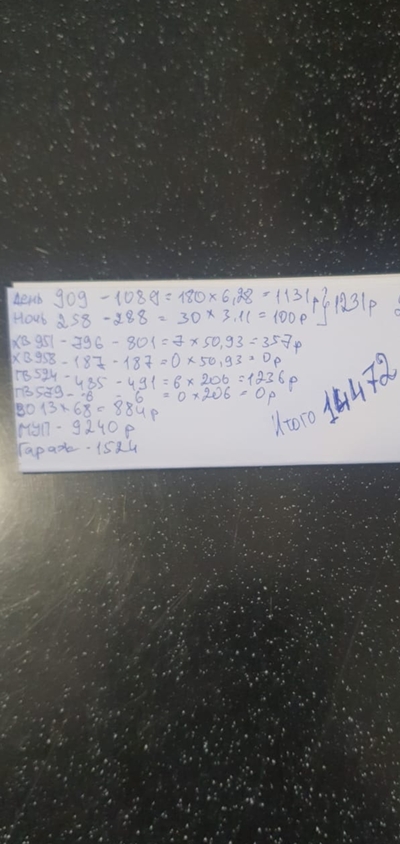 День 909 - 1089 = 180 × 6,28 = 1131р } 1231р
Ночь 258 - 288 = 30 × 3.11 = 100р
ХВ951 - 796 - 801 = 7 × 50,93 = 357р
ХВ958 - 187 - 187 = 0 × 50,93 = 0р
ГВ594 - 485 - 491 = 6 × 206 = 1236р
ГВ579 - 6 - 6 = 0 × 206 = 0р
ВО 13 × 68 = 884р
МУП - 9240 р
Гараж - 1524
Итого 14472